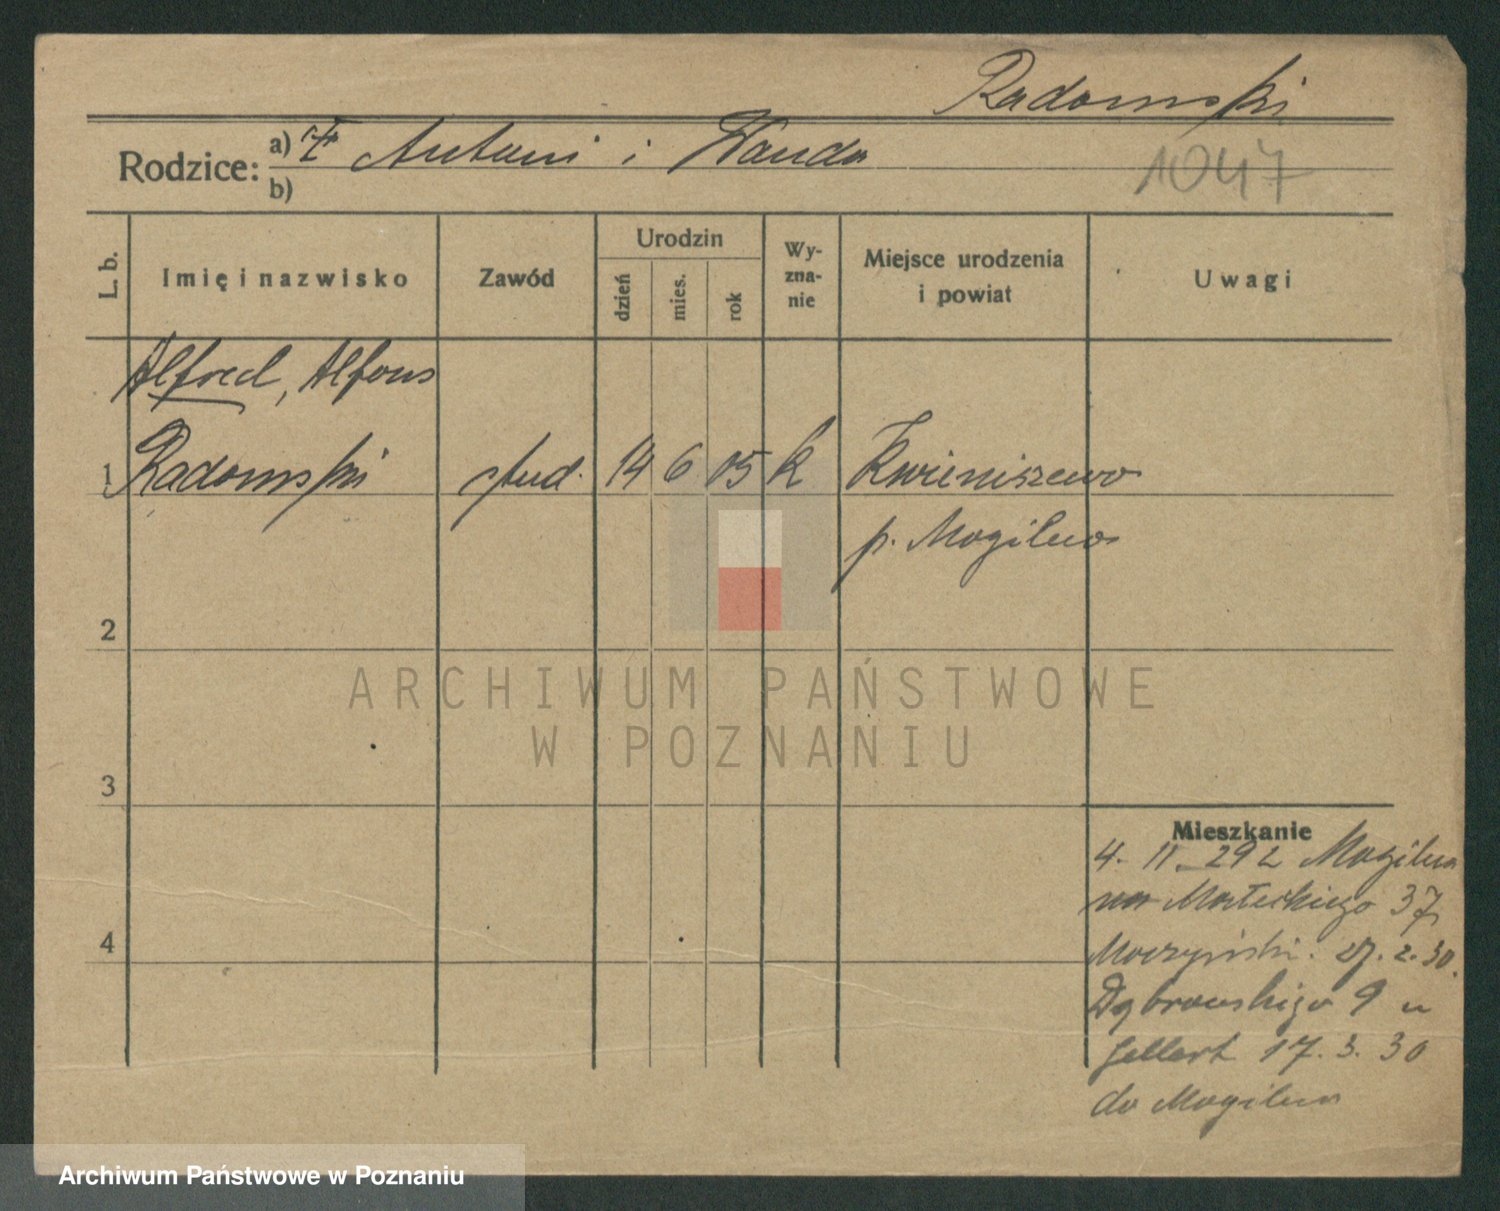 Radomski
Rodzice: a) Antoni i Wanda
b)
1047
L. b.
Imię i nazwisko
Zawód
Urodzin
dzień
mies.
rok
Wy-
zna-
nie
Miejsce urodzenia
i powiat
Uwagi
Alfred, Alfons
1 Radomski stud. 14 6 05 k Kwieciszewo
p. Mogilno
2
ARCHIWUM PAŃSTWOWE
W POZNANIU
3
Mieszkanie
4. 11. 29 z Mogilna
Małeckiego 37
Moczyński. 27. 2. 30.
4
Dąbrowskiego 9 u
Gellert 17. 3. 30
do Mogilna
Archiwum Państwowe w Poznaniu